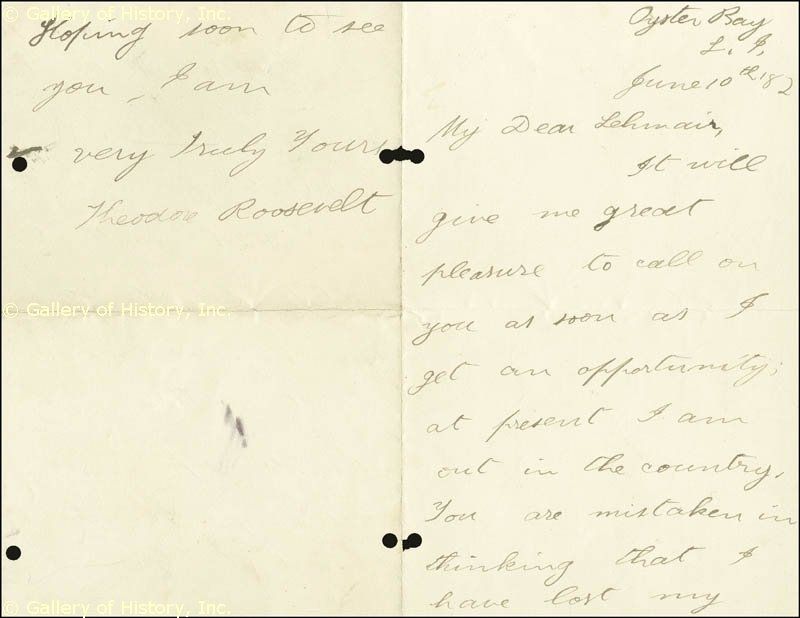 Oyster Bay
L. I.
June 10th '82
My Dear Lehmair,
It will
give me great
pleasure to call on
you as soon as I
get an opportunity;
at present I am
out in the country.
You are mistaken in
thinking that I
have lost my
Hoping soon to see
you, I am
very Truly Yours
Theodore Roosevelt
© Gallery of History, Inc.
© Gallery of History, Inc.
© Gallery of History, Inc.